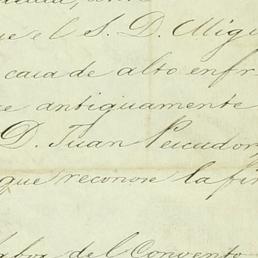 ue el S. D. Migu
caia de alto enfr
e antiguamente
D. Juan Pescador
que reconose la fir
del Convento